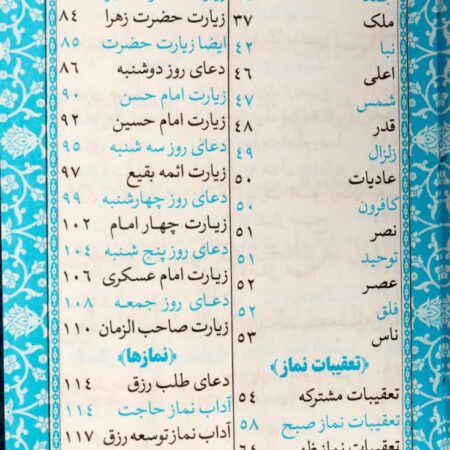 ملک ۳۷
نبا ۴۲
اعلی ۴۶
شمس ۴۷
قدر ۴۸
زلزال ۴۹
عادیات ۵۰
کافرون ۵۰
نصر ۵۱
توحید ۵۱
عصر ۵۲
فلق ۵۲
ناس ۵۳
﴿تعقیبات نماز﴾
تعقیبات مشترکه ۵۴
تعقیبات نماز صبح ۵۸
تعقیبات نماز ظهر ۶۴
زیارت حضرت زهرا ۸۴
ایضا زیارت حضرت ۸۵
دعای روز دوشنبه ۸۶
زیارت امام حسن ۹۰
زیارت امام حسین ۹۲
دعای روز سه شنبه ۹۵
زیارت ائمه بقیع ۹۷
دعای روز چهارشنبه ۹۹
زیارت چهار امام ۱۰۲
دعای روز پنج شنبه ۱۰۴
زیارت امام عسکری ۱۰۶
دعای روز جمعه ۱۰۸
زیارت صاحب الزمان ۱۱۰
﴿نمازها﴾
دعای طلب رزق ۱۱۴
آداب نماز حاجت ۱۱۴
آداب نماز توسعه رزق ۱۱۷